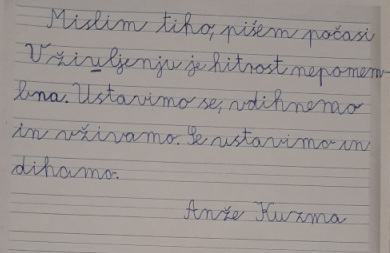 Mislim tiho, pišem počasi
V živuljenju je hitrost nepomem-
bna. Ustavimo se, vdihnemo
in vživamo. Se ustavimo in
dihamo.
Anže Kuzma